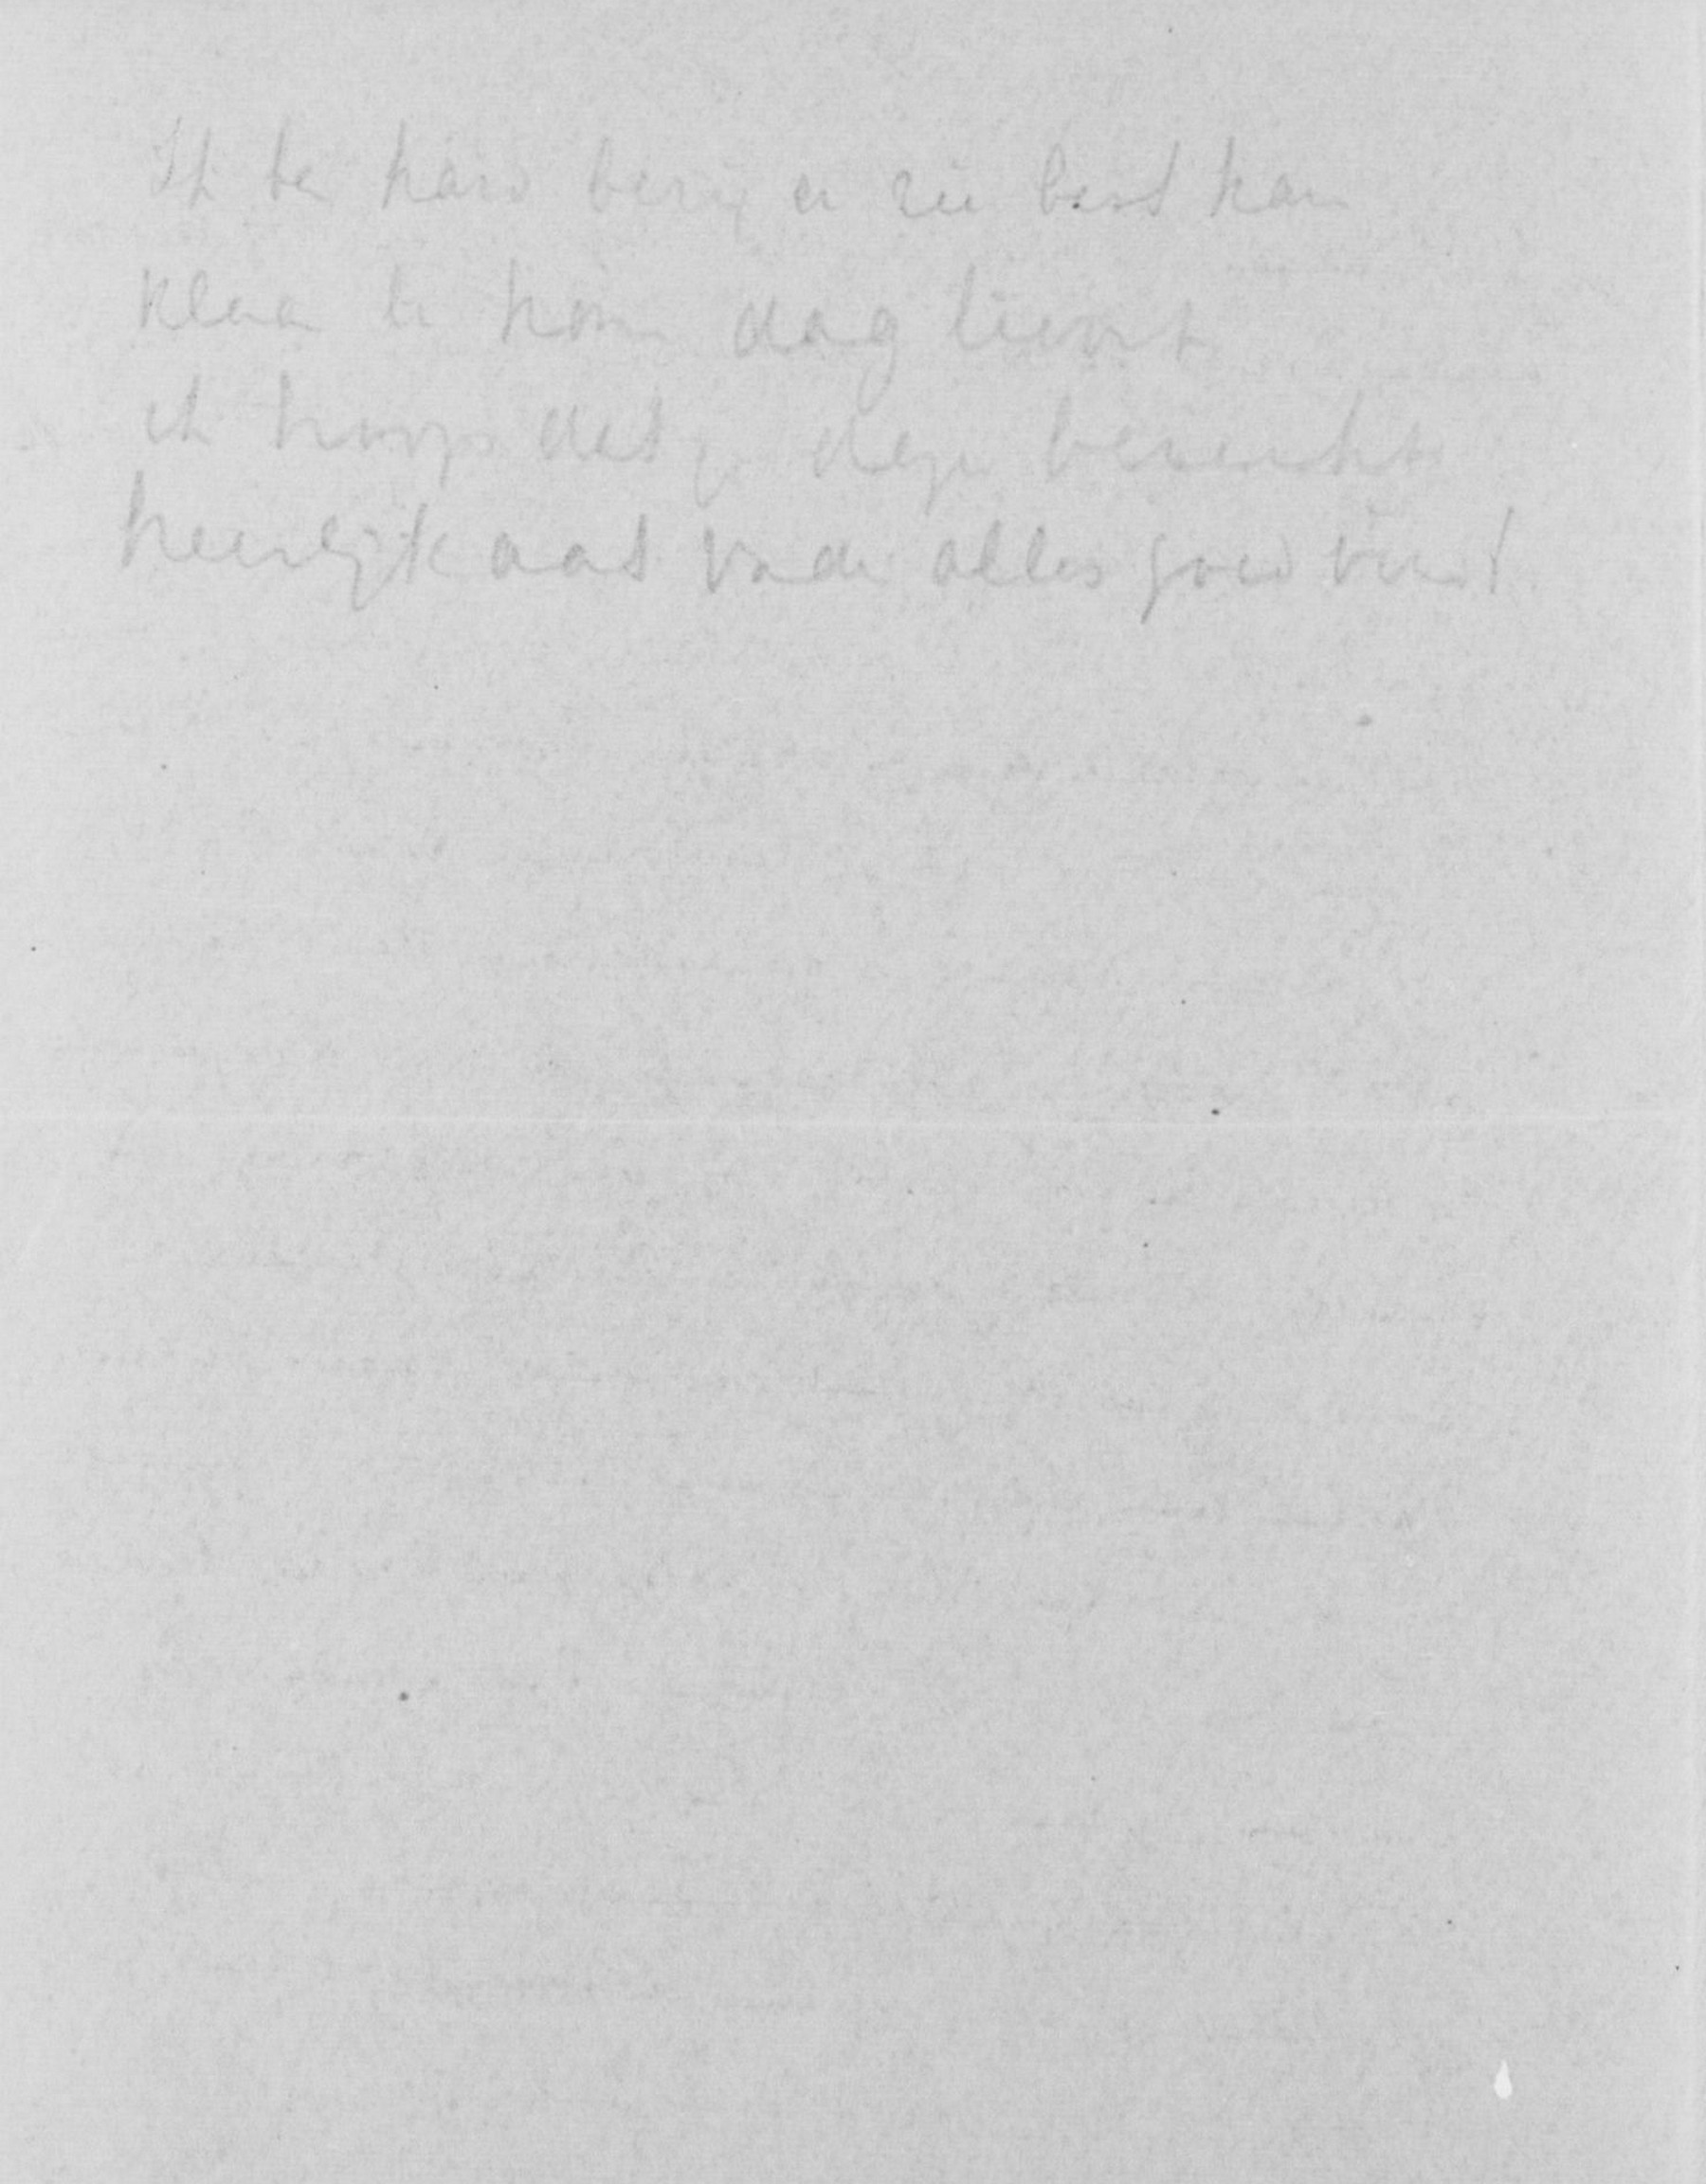 Ik ben hard bezig en zie best kans
klaar te komen dag lieverd
ik hoop dat je deze
heerlijk dat Vader alles goed vind!